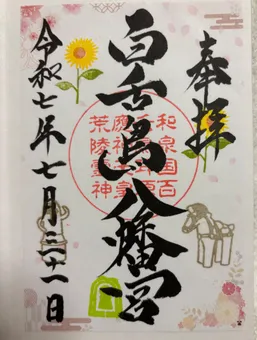 奉拝
百舌鳥八幡宮
和泉国百
荒陵霊神
令和七年七月三十一日